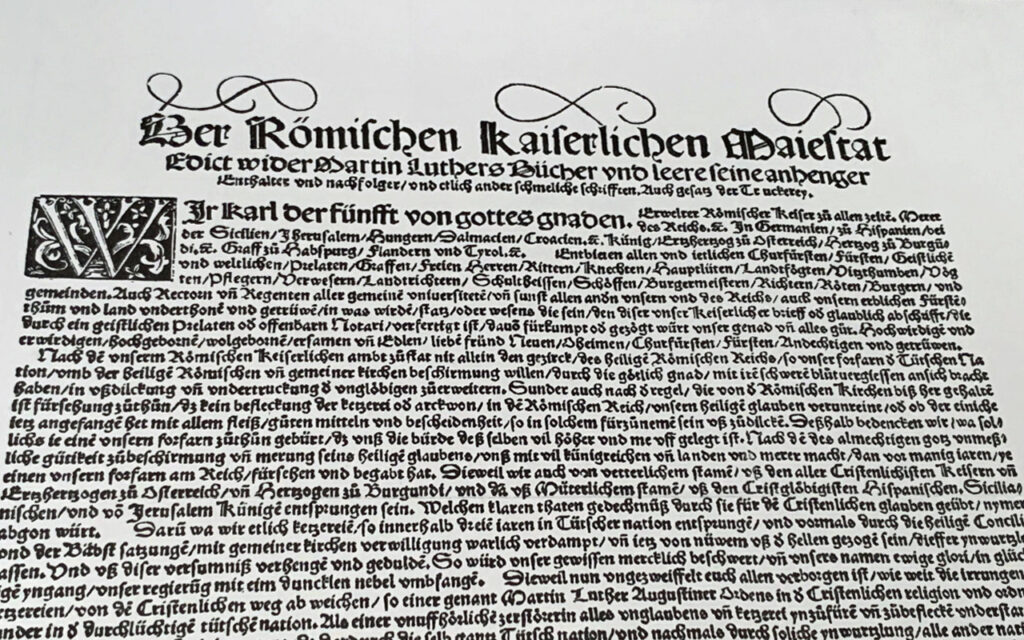 Der Römischen Kaiserlichen Maiestat
Edict wider Martin Luthers Bücher vnd leere seine anhenger
Enthalter vnd nachfolger/ vnd etlich ander schmeliche schrifften. Auch gesatz der Truckerey.
WIr Karl der fünfft von gottes gnaden. Erwelter Römischer Keiser zů allen zeitē. Merer
des Reichs. &c. In Germanien/ zů Hispanien/ bei
der Sicilien/ Jherusalem/ Hungern/ Dalmacien/ Croacien. &c. Künig/ Ertzhertzog zů Osterreich/ Hertzog zů Burgū
di. &c. Graff zů Habspurg/ Flandern vnd Tyrol. &c. Entbieten allen vnd ietlichen Churfürsten/ Fürsten/ Geistliche
vnd weltlichen/ Prelaten/ Graffen/ Freien Herren/ Rittern/ Knechten/ Hauptlüten/ Landtfögten/ Vitzthumben/ Vög
ten/ Pflegern/ Verwesern/ Landtrichtern/ Schultheissen/ Schöffen/ Burgermeistern/ Richtern/ Räten/ Burgern/ vnd
gemeinden. Auch Rectorn vñ Regenten aller gemeinē vniuersitetē/ vñ sunst allen andn vnsern vnd des Reichs/ auch vnsern erblichen Fürstē
thům vnd land vnderthonē vnd getrüwē/ in was wirdē/ statz/ oder wesens die sein/ den diser vnser Keiserlicher brieff od glaublich abschrifft/ die
durch ein geistlichen Prelaten od offenbarn Notari/ verfertigt ist/ fürkumpt od gezögt würt vnser gnad vñ alles gůt. Hochwirdige vnd
erwirdigen/ hochgebornē/ wolgebornē/ ersamen vñ Edlen/ liebē fründ Neuen/ Oheimen/ Churfürsten/ Fürsten/ Andechtigen vnd getrüwen.
Nach dē vnserm Römischen Keiserlichen ambt zůstat nit allein den gezirck/ des Heiligē Römischen Reichs/ so vnser forfarn d Tütschen Na
tion/ vmb der Heiligē Römischen vñ gemeiner kirchen beschirmung willen/ durch die götlich gnad/ mit irē schwerē blůtuergiessen an sich bracht
haben/ in vßdilckung vñ vndertruckung d vnglöbigen zůerweitern. Sunder auch nach d regel/ die von d Römischen Kirchen biß her gehaltē
ist fürsehung zůthůn/ dz kein befleckung der ketzerei od arckwon/ in dē Römischen Reich/ vnsern heiligē glauben verunreine/ od ob der einiche
ietz angefangē het mit allem fleiß/ gůten mitteln vnd bescheidenheit/ so in solchem fürzůnemē sein vß zůdilckē. Deßhalb bedencken wir/ wa sol
lichs ie einē vnsern forfarn zůthůn gebürt/ dz vnß die bürde deßselben vil höher vnd me vff gelegt ist. Nach dē des almechtigen gotz vnmeß
liche gütikeit zůbeschirmung vñ merung seins heiligē glaubens/ vnß mit vil künigreichen vñ landen vnd merer macht/ dan vor manig iaren/ ye
einen vnsern forfarn am Reich/ fürsehen vnd begabt hat. Dieweil wir auch von vetterlichem stamē/ vß den aller Cristenlichisten Keisern vñ
Ertzhertzogen zů Osterreich/ vñ Hertzogen zů Burgundi/ vnd dā vß Můterlichem stamē/ vß den Cristglöbigisten Hispanischen. Sicilia
nischen/ vnd vō Jerusalem Künigē entsprungen sein. Welchen klaren thaten gedechtnūß durch sie für dē Cristenlichen glauben geübt/ nymer
abgon würt. Darū wa wir etlich ketzereiē/ so innerhalb dreiē iaren in Tütscher nation entsprungē/ vnd vormals durch die heiligē Concili
vnd der Bäbst satzungē/ mit gemeiner kirchen verwilligung warlich verdampt/ vñ ietz von nüwem vß d hellen gezogē sein/ tieffer ynwurtzle
assen. Vnd vß diser versumniß verhengē vnd geduldē. So würd vnser gewissen mercklich beschwert/ vñ vnsers namen ewige glori/ in glück
igē yngang/ vnser regierūg mit eim duncklen nebel vmbfangē. Dieweil nun vngezweiffelt euch allen verborgen ist/ wie weit die irrungen
tzereien/ von dē Cristenlichen weg ab weichen/ so einer genant Martin Luther Augustiner Ordens in d Cristenlichen religion vnd ordn
under in d durchlüchtigē tütschē nation. Als einer vnuffhörlichē zerstörerin alles vnglaubens vñ ketzerei ynzůfürē vñ zůbefleckē vnderstan
durch die selb gantz Tütsch nation/ vnd nachmals durch solliche ynwurtzlung/ alle ander nat